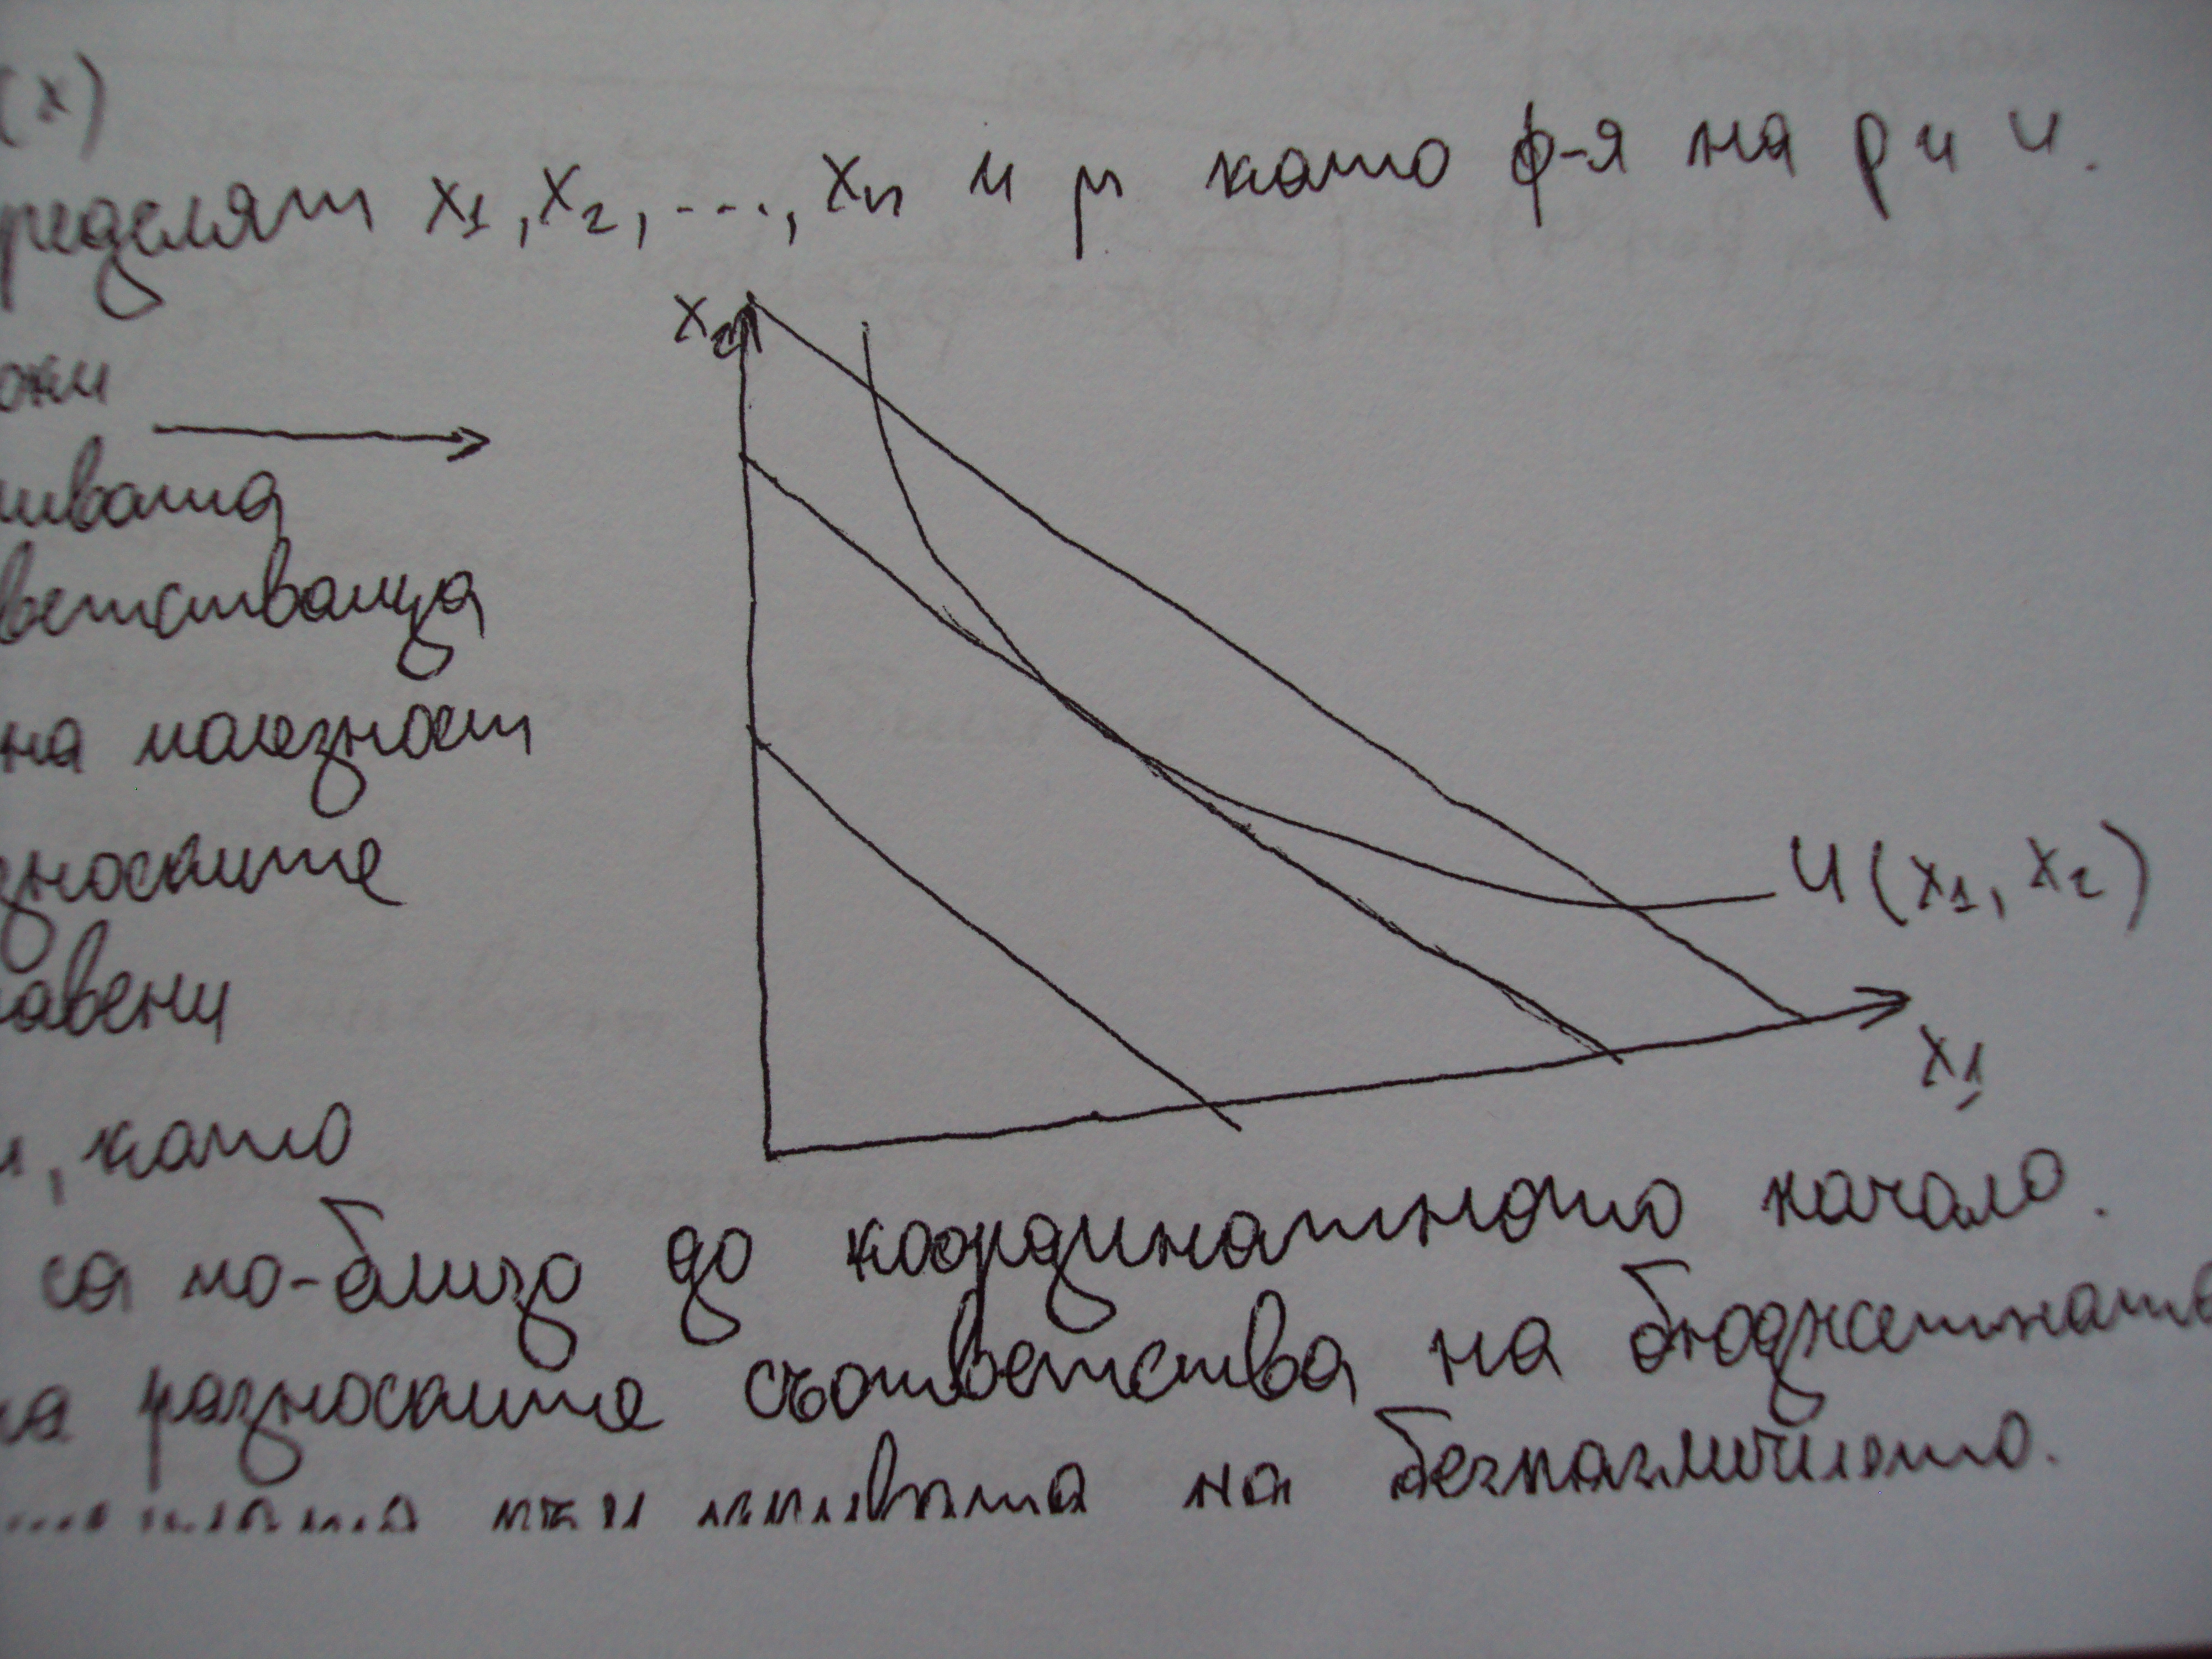 (x)
ределят x1, x2, ...., xn и μ като ф-я на p и u.
x2
ожи
ивата
ветстваща
на полезност
зноските
авени
U(x1, x2)
x1
и, като
са по-близо до координатното начало.
на разноските съответства на бюджетната
на безразличието.